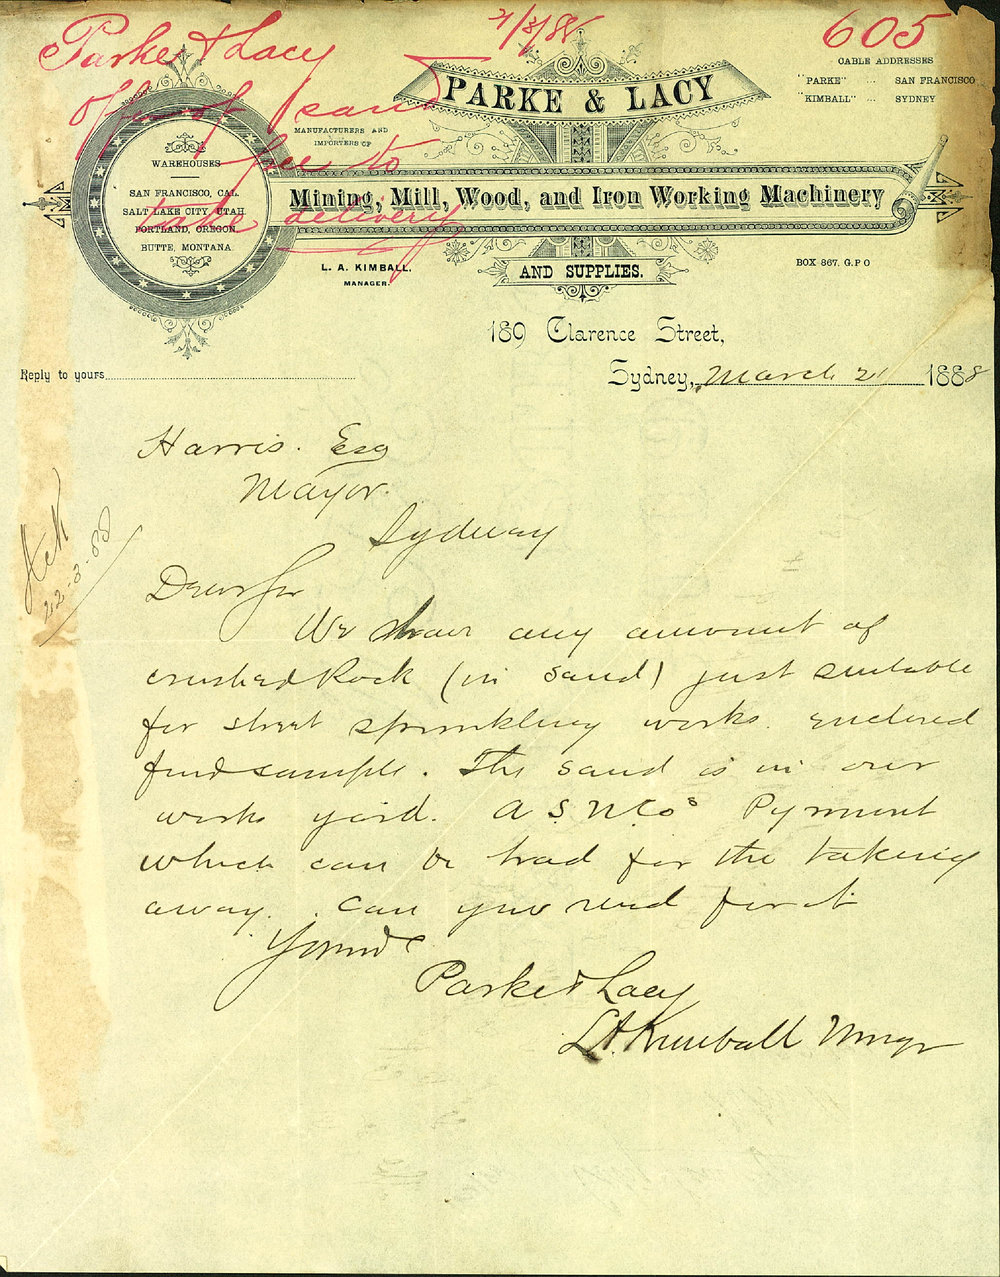 Parke & Lacy
21/3/88
605
offer of sand
free to
take delivery
CABLE ADDRESSES
"PARKE" ... SAN FRANCISCO
"KIMBALL" ... SYDNEY
PARKE & LACY
MANUFACTURERS AND
IMPORTERS OF
Mining, Mill, Wood, and Iron Working Machinery
AND SUPPLIES.
WAREHOUSES
SAN FRANCISCO, CAL.
SALT LAKE CITY, UTAH.
PORTLAND, OREGON.
BUTTE, MONTANA.
L. A. KIMBALL.
MANAGER.
BOX 867. G.P O
189 Clarence Street,
Reply to yours
Sydney, March 21 1888
Harris. Esq
Mayor.
Sydney
22-3-88
Dear Sir
We have any amount of
crushed Rock (in sand) just suitable
for street sprinkling works. enclosed
find sample. The sand is in our
works yard. A S N Cos Pyrmont
which can be had for the taking
away. Can you send for it
Yours
Parke & Lacy
LA Kimball Mngr